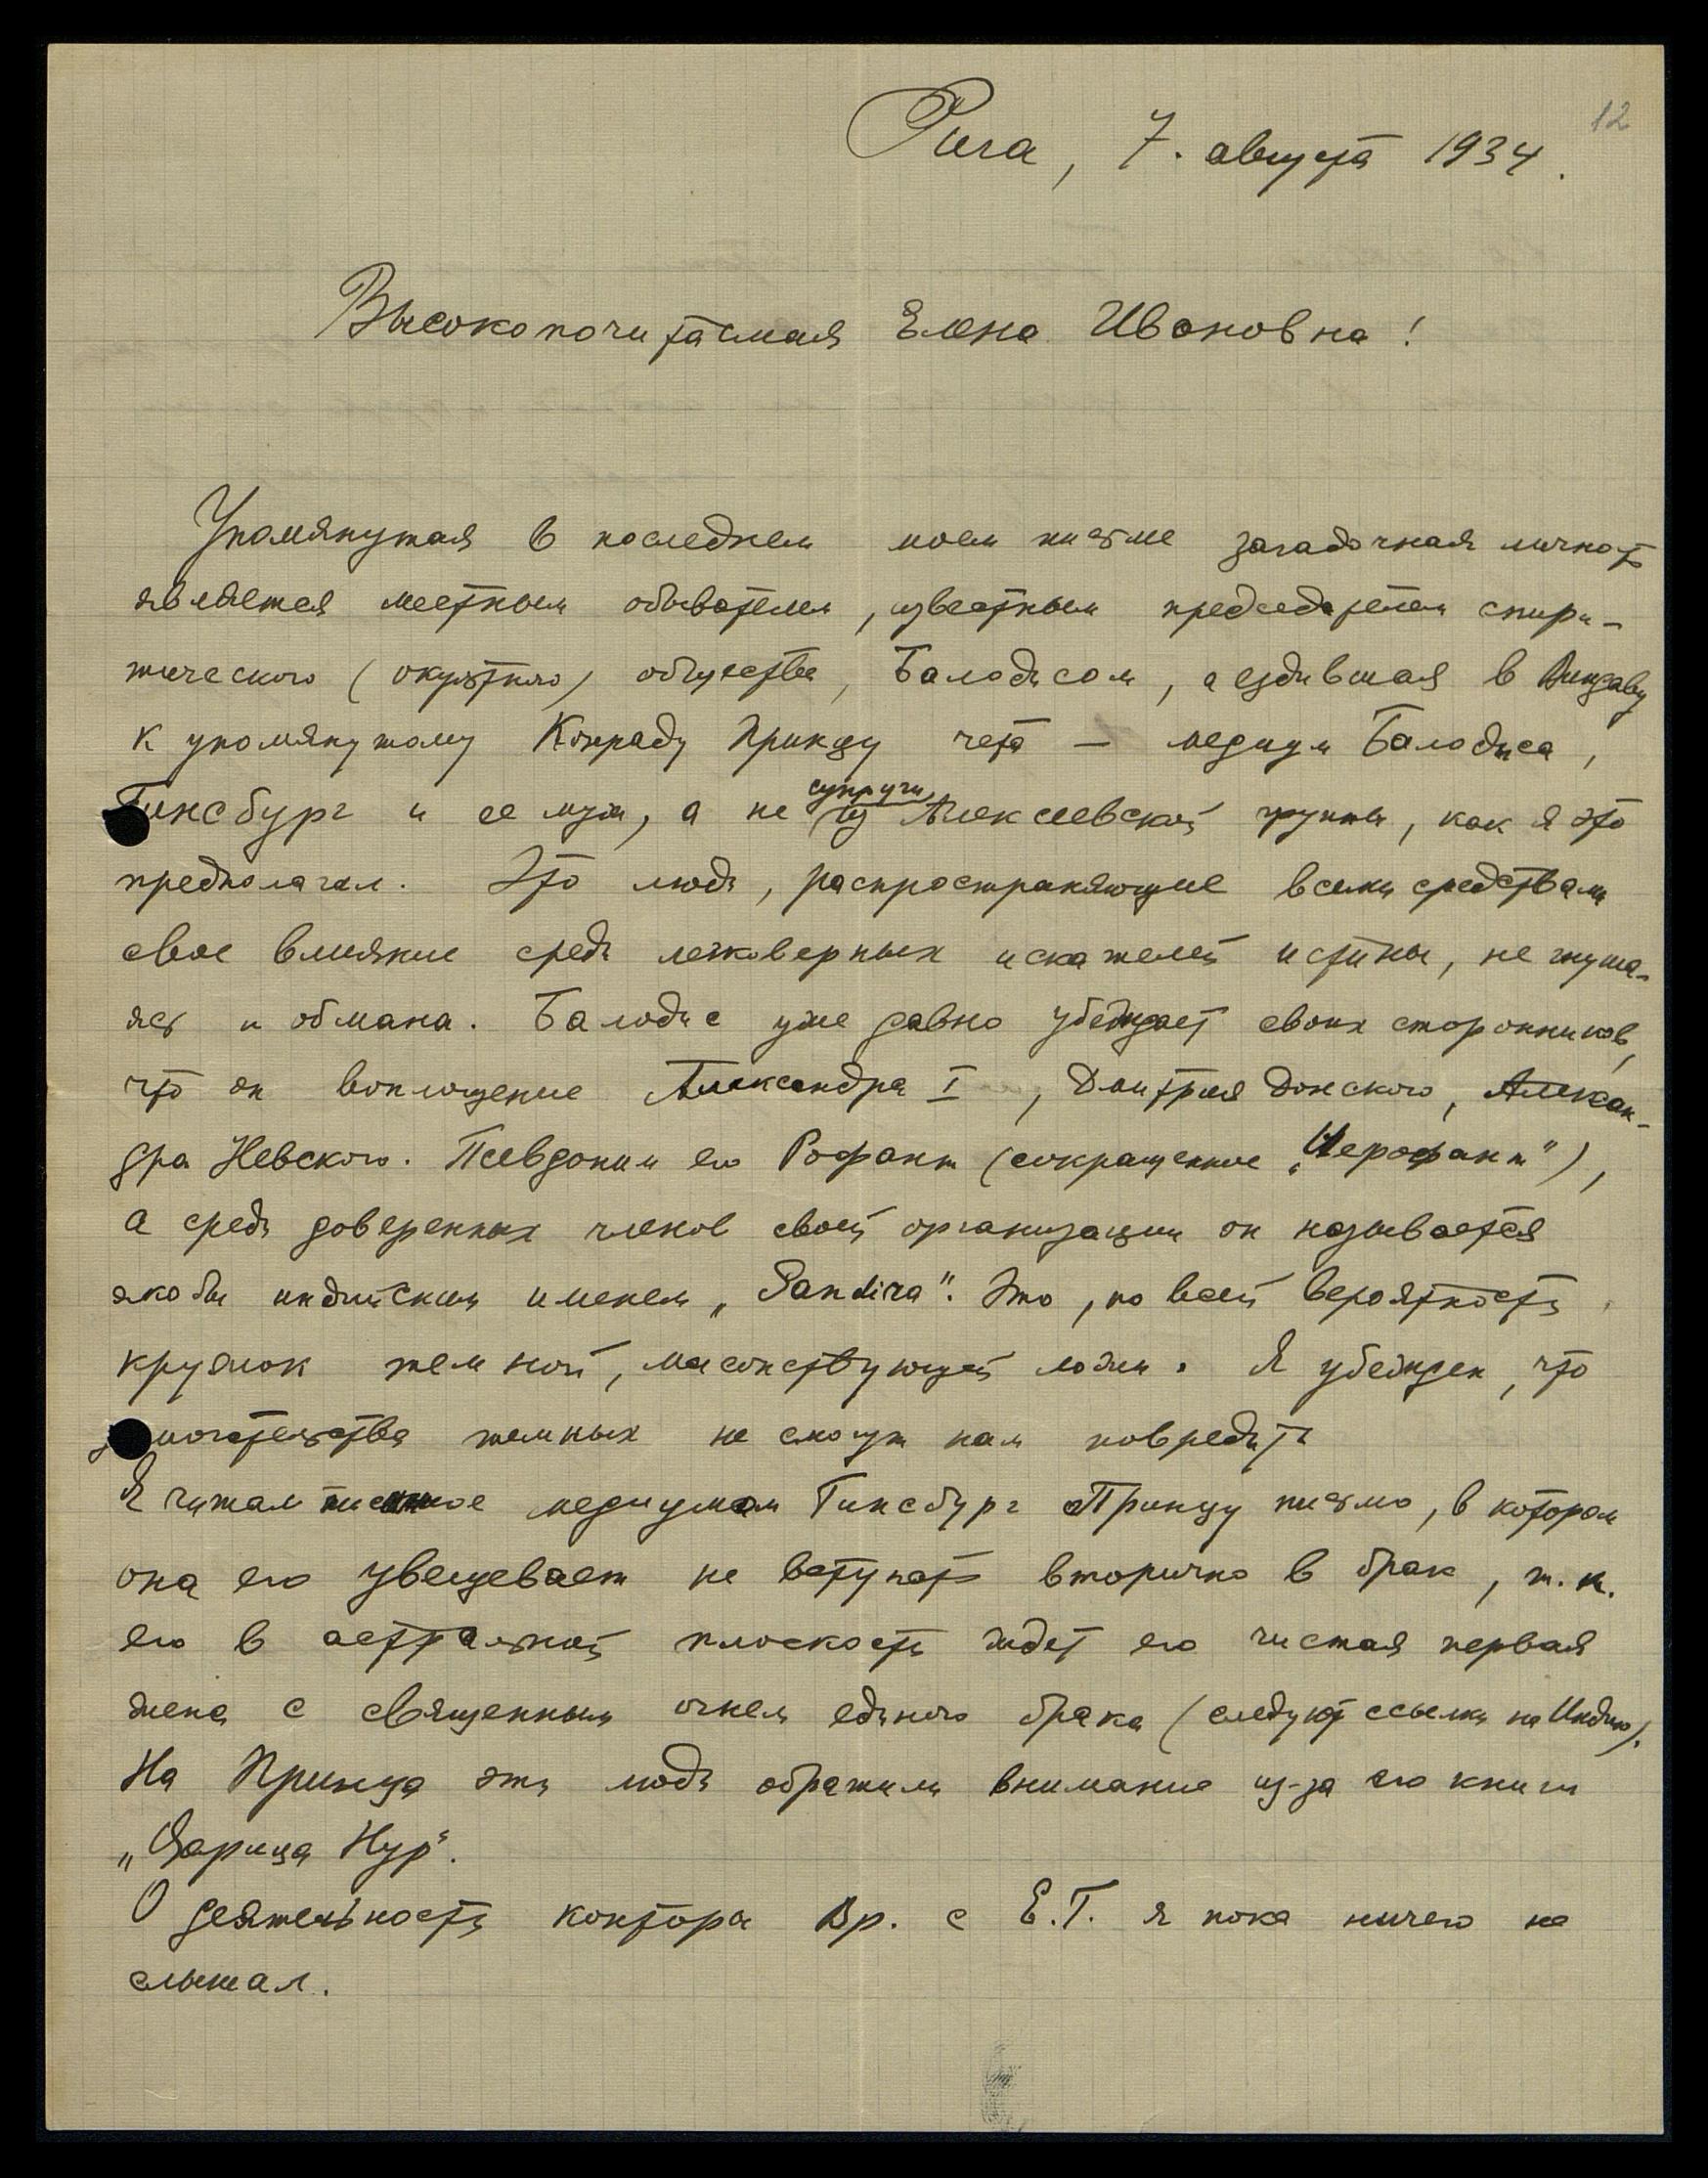 12
Рига, 7. августа 1934.
Высокопочитаемая Елена Ивановна!
Упомянутая в последнем моем письме загадочная личность
является местным обывателем, известным председателем спири-
тического (окультного) общества, Балодисом, а ездившая в Виндаву
к упомянутому Конраду Принцу чета — медиум Балодиса,
Гинсбург и ее муж, а не супруги
из Алексеевской группы, как я это
предполагал. Это люди, распространяющие всеми средствами
свое влияние среди легковерных искателей истины, не гнуша-
ясь и обмана. Балодис уже давно убеждает своих сторонников,
что он воплощение Александра I, Дмитрия Донского, Алексан-
дра Невского. Псевдоним его Рофант (сокращенное „Иерофант"),
а среди доверенных членов своей организации он называется
якобы индийским именем „Sandira". Это, по всей вероятности
кружок темной, масонствующей ложи. Я убежден, что
темных не смогут нам повредить
Я читал писанное медиумом Гинсбург Принцу письмо, в котором
она его увещевает не вступать вторично в брак, т.к.
его в астральной плоскости ждет его чистая первая
жена с священным огнем единого брака (следуют ссылки на Индию).
На Принца эти люди обратили внимание из-за его книги
„Царица Нур".
О деятельности конторы Вр. с Е.Г. я пока ничего не
слышал.